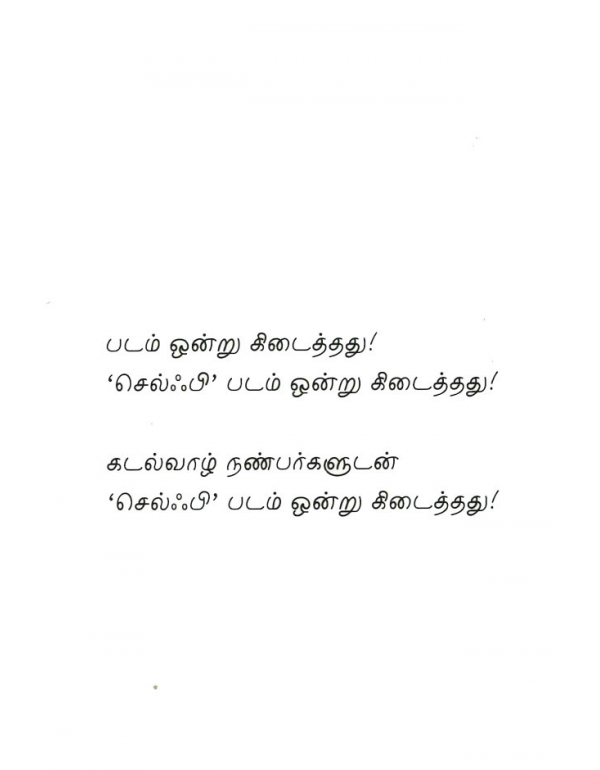 படம் ஒன்று கிடைத்தது!
‘செல்ஃபி’ படம் ஒன்று கிடைத்தது!
கடல்வாழ் நண்பர்களுடன்
‘செல்ஃபி’ படம் ஒன்று கிடைத்தது!